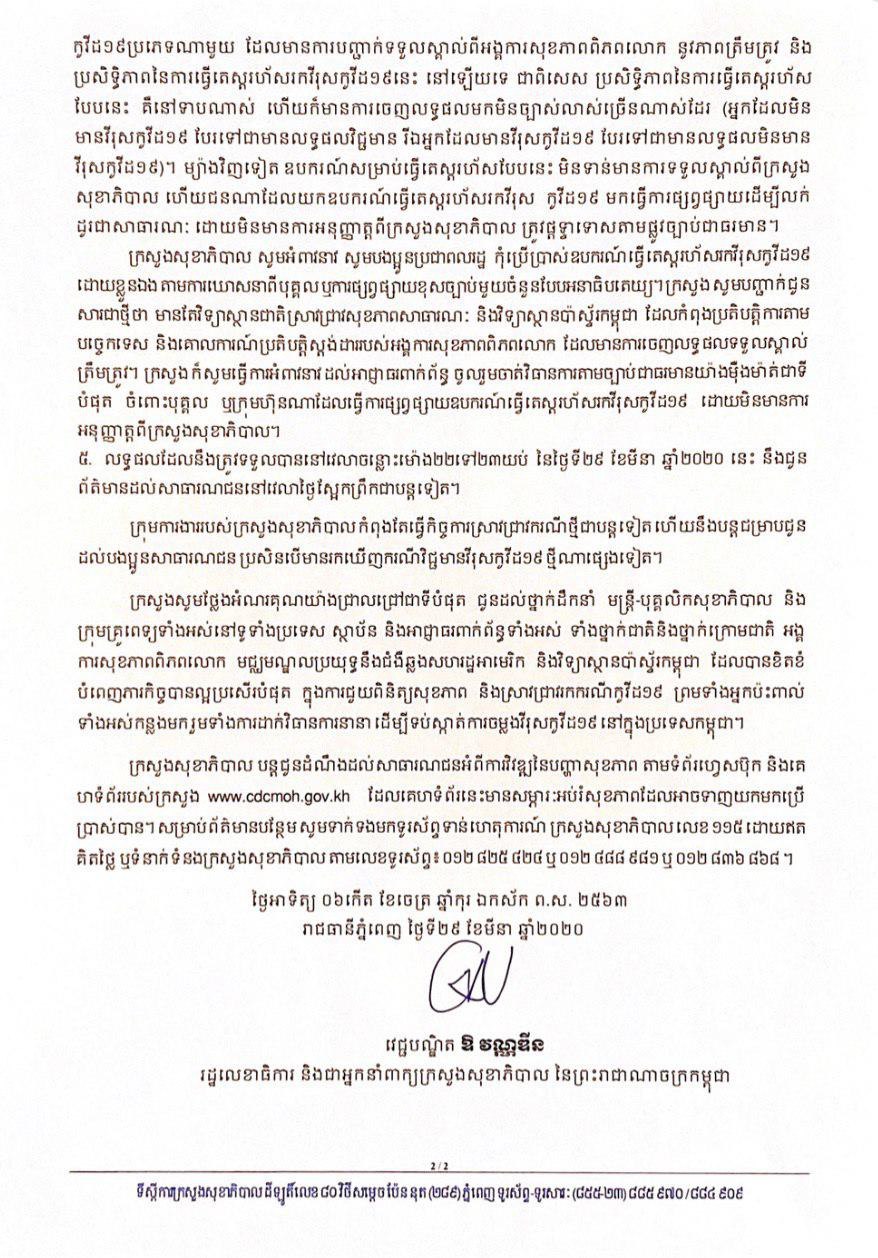 កូវីដ១៩ប្រភេទណាមួយ ដែលមានការបញ្ជាក់ទទួលស្គាល់ពីអង្គការសុខភាពពិភពលោក នូវភាពត្រឹមត្រូវ និង
ប្រសិទ្ធិភាពនៃការធ្វើតេស្តរហ័សរកវីរុសកូវីដ១៩នេះ នៅឡើយទេ ជាពិសេស ប្រសិទ្ធិភាពនៃការធ្វើតេស្តរហ័ស
បែបនេះ គឺនៅទាបណាស់ ហើយក៏មានការចេញលទ្ធផលមកមិនច្បាស់លាស់ច្រើនណាស់ដែរ (អ្នកដែលមិន
មានវីរុសកូវីដ១៩ បែរទៅជាមានលទ្ធផលវិជ្ជមាន រីឯអ្នកដែលមានវីរុសកូវីដ១៩ បែរទៅជាមានលទ្ធផលមិនមាន
វីរុសកូវីដ១៩)។ ម្យ៉ាងវិញទៀត ឧបករណ៍សម្រាប់ធ្វើតេស្តរហ័សបែបនេះ មិនទាន់មានការទទួលស្គាល់ពីក្រសួង
សុខាភិបាល ហើយជនណាដែលយកឧបករណ៍ធ្វើតេស្តរហ័សរកវីរុស កូវីដ១៩ មកធ្វើការផ្សព្វផ្សាយដើម្បីលក់
ដូរជាសាធារណៈ ដោយមិនមានការអនុញ្ញាតពីក្រសួងសុខាភិបាល ត្រូវផ្តន្ទាទោសតាមផ្លូវច្បាប់ជាធរមាន។
ក្រសួងសុខាភិបាល សូមអំពាវនាវ សូមបងប្អូនប្រជាពលរដ្ឋ កុំប្រើប្រាស់ឧបករណ៍ធ្វើតេស្តរហ័សរកវីរុសកូវីដ១៩
ដោយខ្លួនឯង តាមការឃោសនាពីបុគ្គលឬការផ្សព្វផ្សាយខុសច្បាប់មួយចំនួនបែបអនាធិបតេយ្យ។ ក្រសួង សូមបញ្ជាក់ជូន
សារជាថ្មីថា មានតែវិទ្យាស្ថានជាតិស្រាវជ្រាវសុខភាពសាធារណៈ និងវិទ្យាស្ថានប៉ាស្ទ័រកម្ពុជា ដែលកំពុងប្រតិបត្តិការតាម
បច្ចេកទេស និងគោលការណ៍ប្រតិបត្តិស្តង់ដាររបស់អង្គការសុខភាពពិភពលោក ដែលមានការចេញលទ្ធផលទទួលស្គាល់
ត្រឹមត្រូវ។ ក្រសួង ក៏សូមធ្វើការអំពាវនាវ ដល់អាជ្ញាធរពាក់ព័ន្ធ ចូលរួមចាត់វិធានការតាមច្បាប់ជាធរមានយ៉ាងម៉ឺងម៉ាត់ជាទី
បំផុត ចំពោះបុគ្គល ឬក្រុមហ៊ុនណាដែលធ្វើការផ្សព្វផ្សាយឧបករណ៍ធ្វើតេស្តរហ័សរកវីរុសកូវីដ១៩ ដោយមិនមានការ
អនុញ្ញាតពីក្រសួងសុខាភិបាល។
៥. លទ្ធផលដែលនឹងត្រូវទទួលបាននៅវេលាចន្លោះម៉ោង២២ទៅ២៣យប់ នៃថ្ងៃទី២៩ ខែមីនា ឆ្នាំ២០២០ នេះ នឹងជូន
ព័ត៌មានដល់សាធារណជននៅវេលាថ្ងៃស្អែកព្រឹកជាបន្តទៀត។
ក្រុមការងាររបស់ក្រសួងសុខាភិបាលកំពុងតែធ្វើកិច្ចការស្រាវជ្រាវករណីថ្មីជាបន្តទៀត ហើយនឹងបន្តជម្រាបជូន
ដល់បងប្អូនសាធារណជន ប្រសិនបើមានរកឃើញករណីវិជ្ជមានវីរុសកូវីដ១៩ ថ្មីណាផ្សេងទៀត។
ក្រសួងសូមថ្លែងអំណរគុណយ៉ាងជ្រាលជ្រៅជាទីបំផុត ជូនដល់ថ្នាក់ដឹកនាំ មន្ត្រី-បុគ្គលិកសុខាភិបាល និង
ក្រុមគ្រូពេទ្យទាំងអស់នៅទូទាំងប្រទេស ស្ថាប័ន និងអាជ្ញាធរពាក់ព័ន្ធទាំងអស់ ទាំងថ្នាក់ជាតិនិងថ្នាក់ក្រោមជាតិ អង្គ
ការសុខភាពពិភពលោក មជ្ឈមណ្ឌលប្រយុទ្ធនឹងជំងឺឆ្លងសហរដ្ឋអាមេរិក និងវិទ្យាស្ថានប៉ាស្ទ័រកម្ពុជា ដែលបានខិតខំ
បំពេញភារកិច្ចបានល្អប្រសើរបំផុត ក្នុងការជួយពិនិត្យសុខភាព និងស្រាវជ្រាវរកករណីកូវីដ១៩ ព្រមទាំងអ្នកប៉ះពាល់
ទាំងអស់កន្លងមក រួមទាំងការដាក់វិធានការនានា ដើម្បីទប់ស្កាត់ការចម្លងវីរុសកូវីដ១៩ នៅក្នុងប្រទេសកម្ពុជា។
ក្រសួងសុខាភិបាល បន្តជូនដំណឹងដល់សាធារណជនអំពីការវិវឌ្ឍនៃបញ្ហាសុខភាព តាមទំព័រហ្វេសប៊ុក និងគេ
ហទំព័ររបស់ក្រសួង www.cdcmoh.gov.kh ដែលគេហទំព័រនេះមានសម្ភារៈអប់រំសុខភាពដែលអាចទាញយកមកប្រើ
ប្រាស់បាន។ សម្រាប់ព័ត៌មានបន្ថែម សូមទាក់ទងមកទូរស័ព្ទទាន់ហេតុការណ៍ ក្រសួងសុខាភិបាល លេខ ១១៥ ដោយឥត
គិតថ្លៃ ឬទំនាក់ទំនងក្រសួងសុខាភិបាល តាមលេខទូរស័ព្ទ៖ ០១២ ៨២៥ ៤២៤ ឬ ០១២ ៤៨៨ ៩៨១ ឬ ០១២ ៨៣៦ ៨៦៨ ។
ថ្ងៃអាទិត្យ ០៦កើត ខែចេត្រ ឆ្នាំកុរ ឯកស័ក ព.ស. ២៥៦៣
រាជធានីភ្នំពេញ ថ្ងៃទី២៩ ខែមីនា ឆ្នាំ២០២០
វេជ្ជបណ្ឌិត ឱ វណ្ណឌីន
រដ្ឋលេខាធិការ និងជាអ្នកនាំពាក្យក្រសួងសុខាភិបាល នៃព្រះរាជាណាចក្រកម្ពុជា
2 / 2
ទីស្តីការក្រសួងសុខាភិបាល ដីឡូតិ៍លេខ ៨០ វិថីសម្តេចប៉ែន នុត (២៨៩) ភ្នំពេញ ទូរស័ព្ទ-ទូរសារៈ (៨៥៥-២៣) ៨៨៥ ៩៧០ / ៨៨៤ ៩០៩